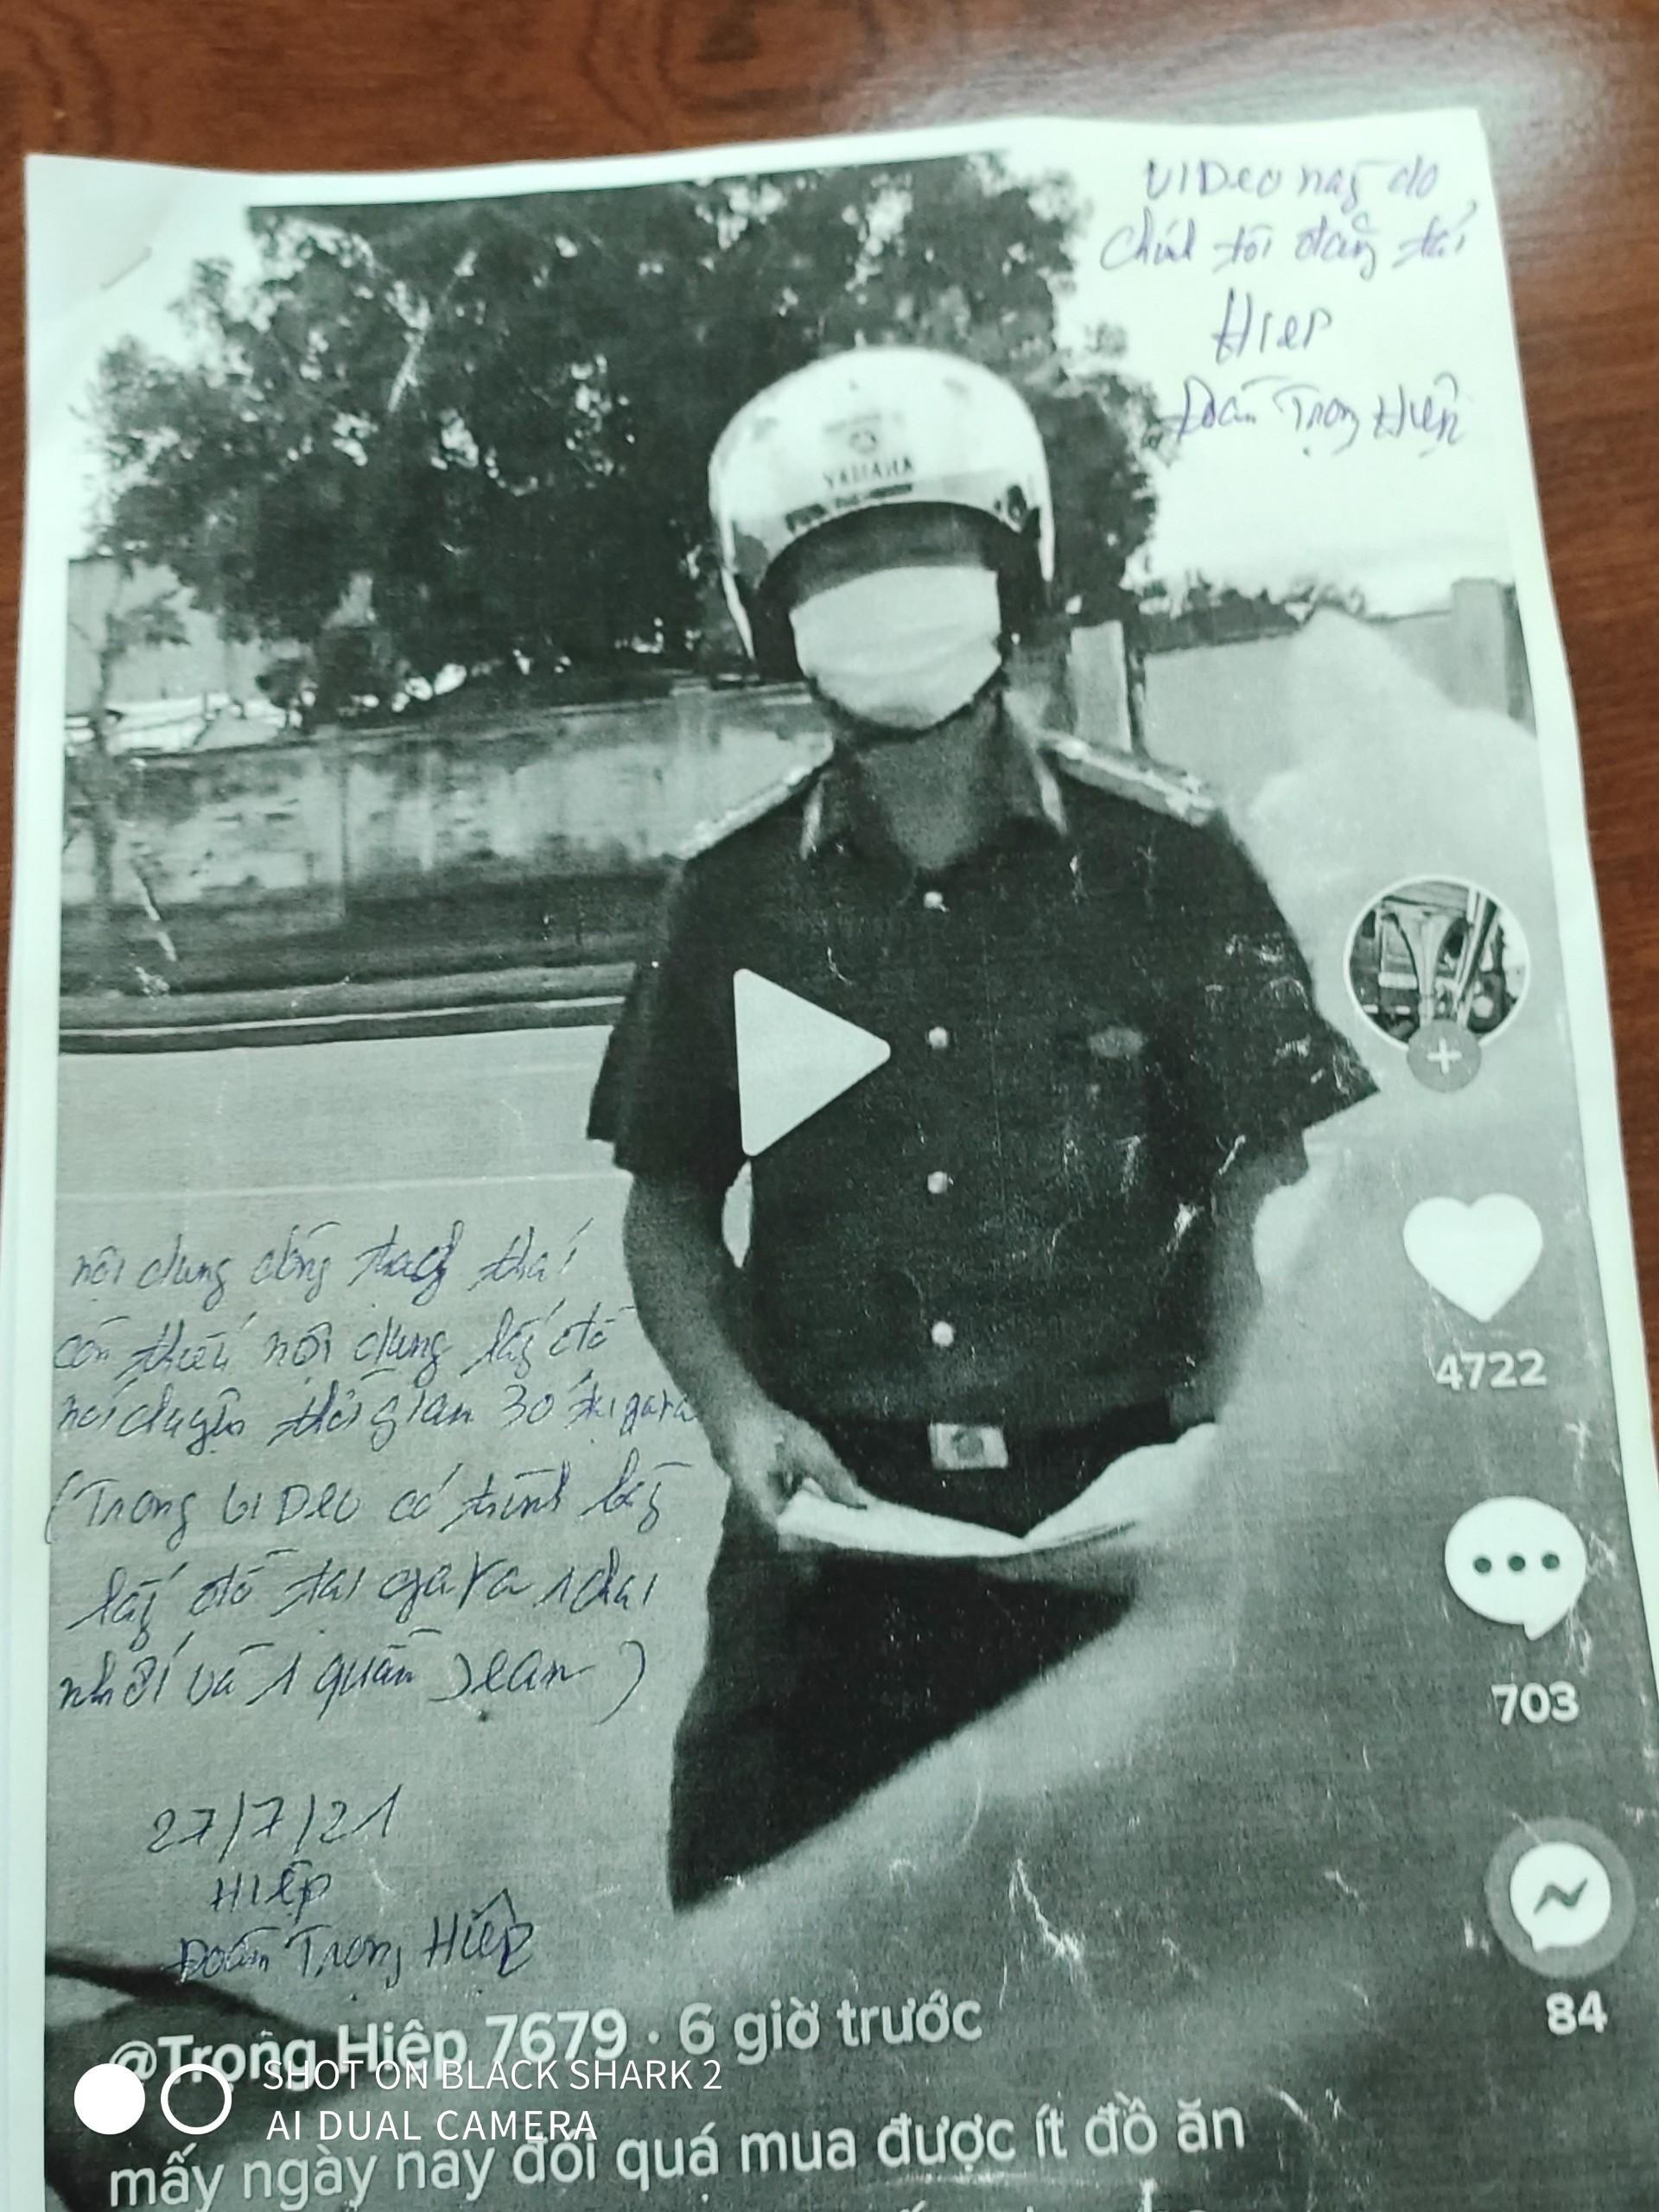 VIDeo nay do
chính tôi đăng tải
Hiep
Đoàn Trọng Hiệp
YAMAHA
nội dung đăng
còn thiếu nội dung lấy đồ
nói chuyện thời gian 30 tại gara
(Trong VIDeo có trình bày
lấy đồ tại gara 1 chai
nhớt và 1 quần Jean)
27/7/21
Hiệp
Đoàn Trọng Hiệp
4722
703
84
@Trọng Hiệp 7679 · 6 giờ trước
SHOT ON BLACK SHARK 2
AI DUAL CAMERA
mấy ngày nay đói quá mua được ít đồ ăn